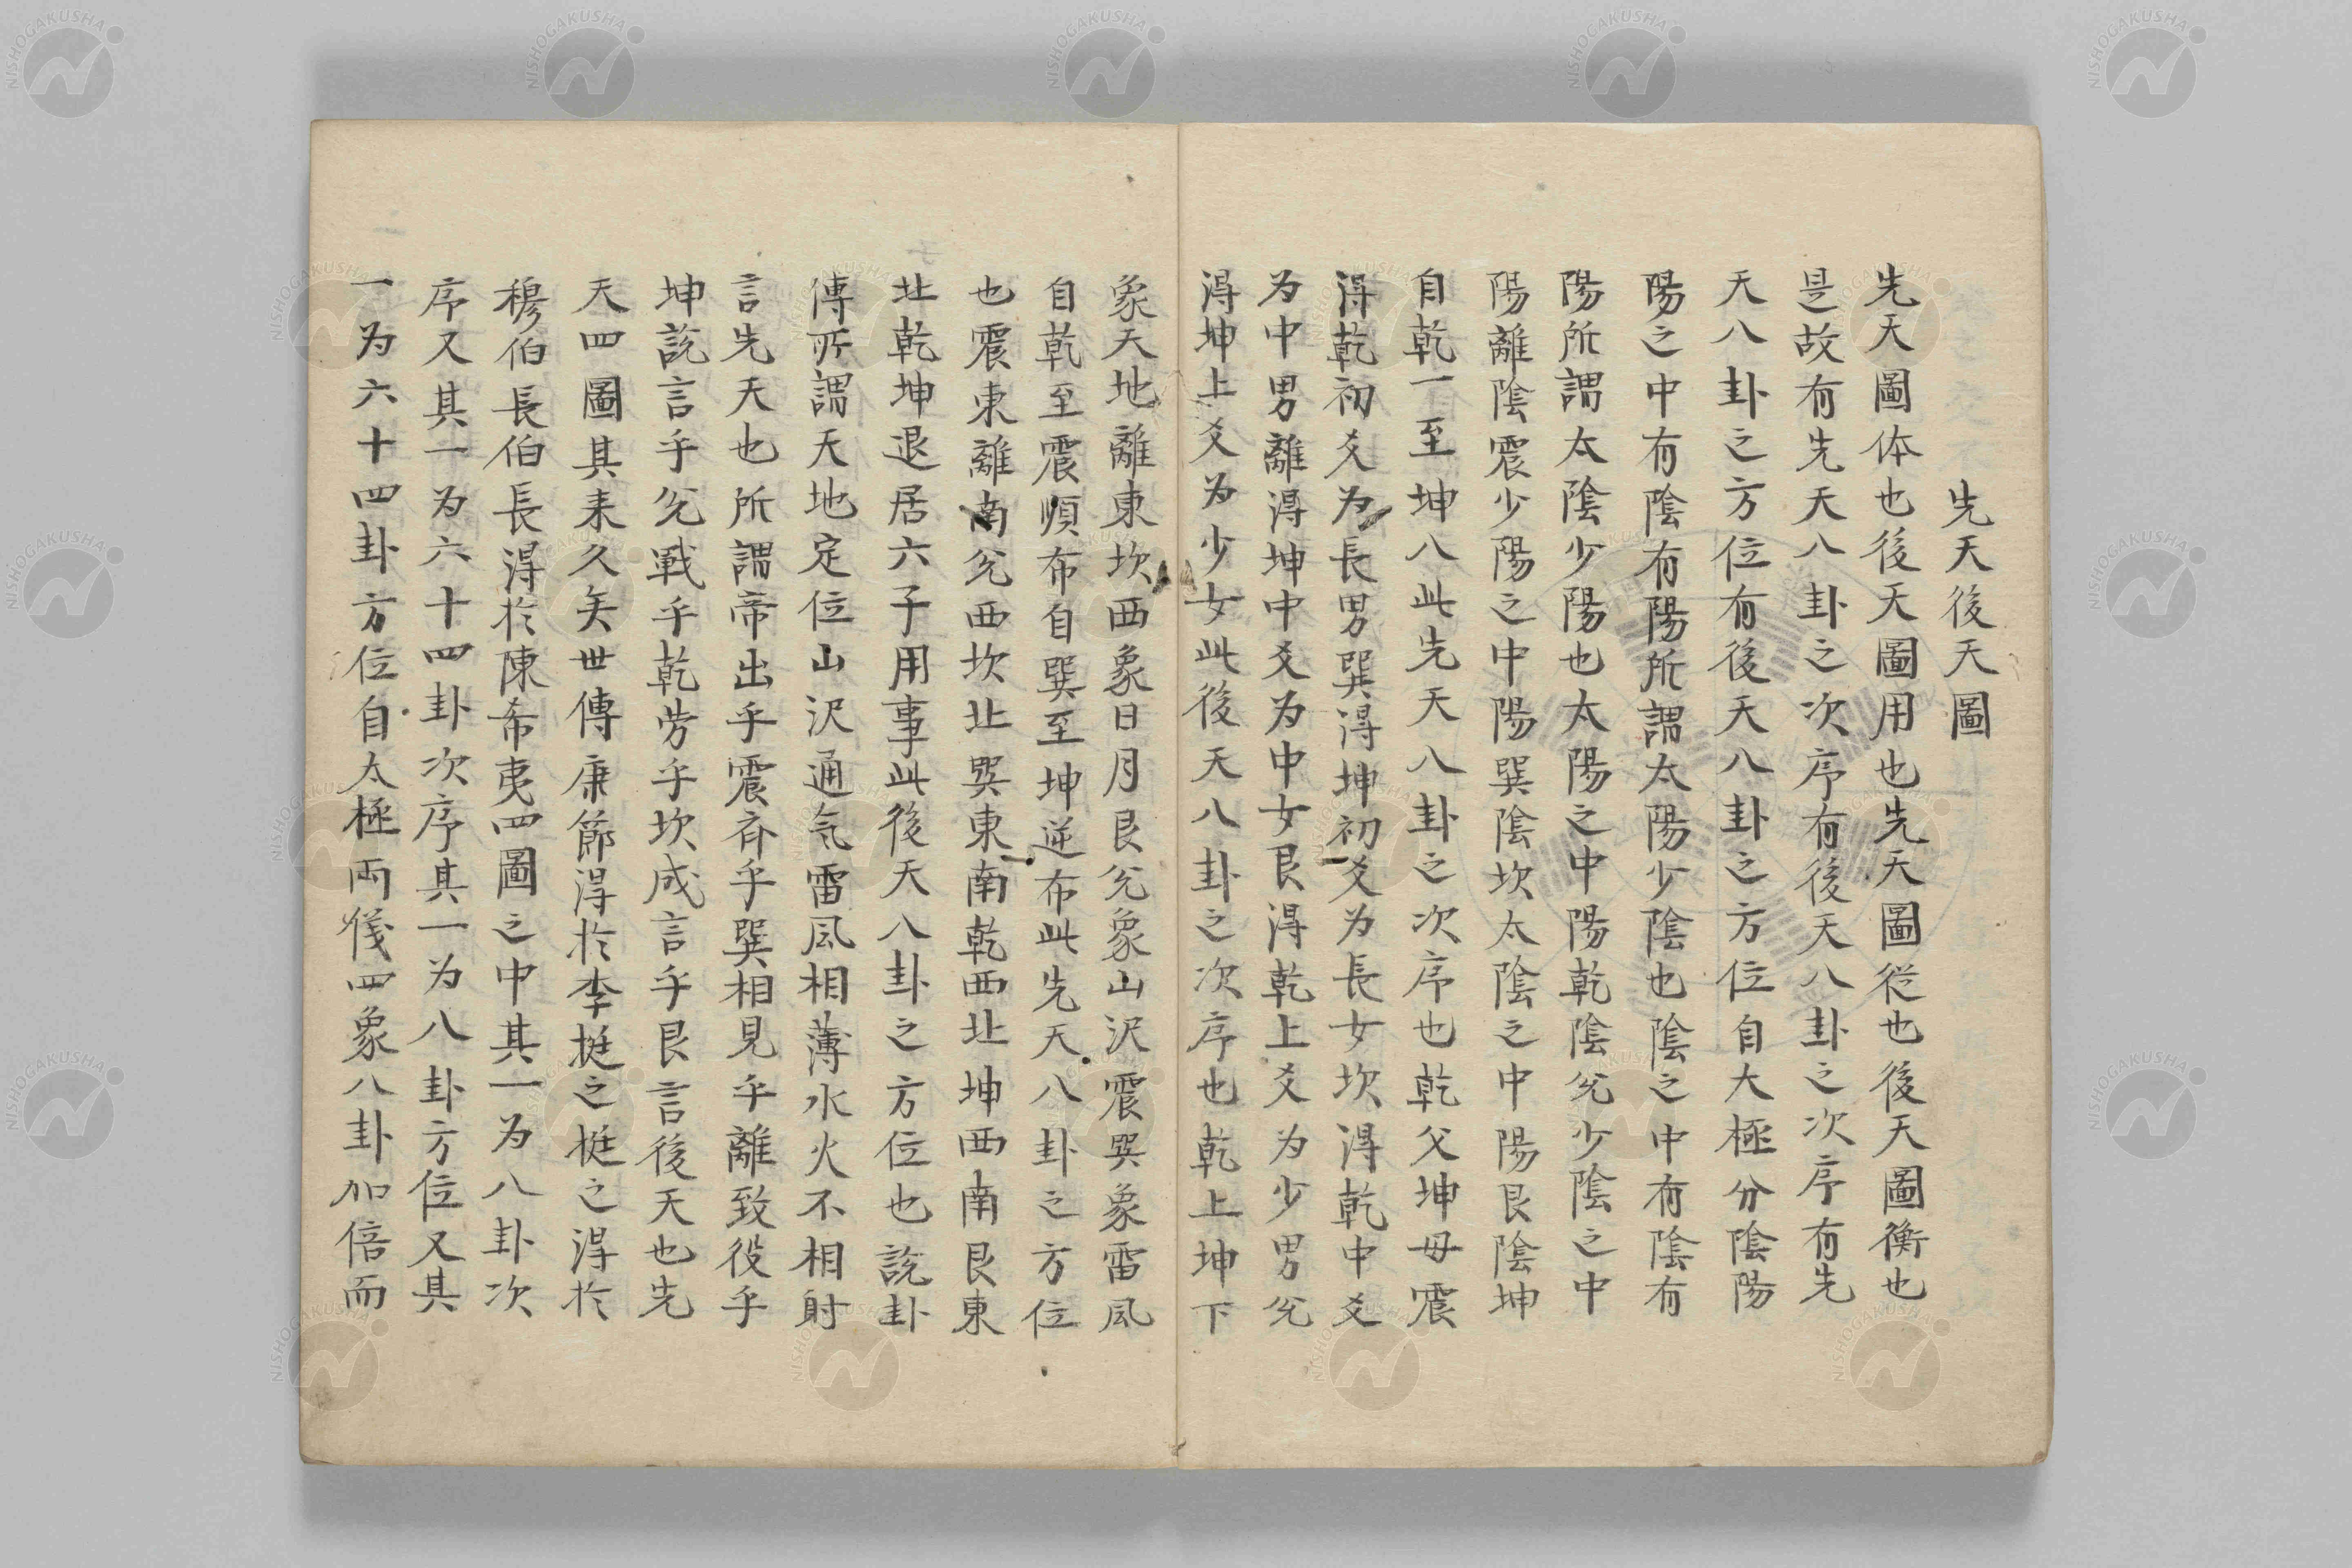 先天後天圖
先天圖体也後天圖用也先天圖従也後天圖衡也
是故有先天八卦之次序有後天八卦之次序有先
天八卦之方位有後天八卦之方位自大極分陰陽
陽之中有陰有陽所謂太陽少陰也陰之中有陰有
陽所謂太陰少陽也太陽之中陽乾陰兊少陰之中
陽離陰震少陽之中陽巽陰坎太陰之中陽艮陰坤
自乾一至坤八此先天八卦之次序也乾父坤母震
得乾初爻为長男巽得坤初爻为長女坎得乾中爻
为中男離得坤中爻为中女艮得乾上爻为少男兊
得坤上爻为少女此後天八卦之次序也乾上坤下
象天地離東坎西象日月艮兊象山沢震巽象雷風
自乾至震順布自巽至坤逆布此先天八卦之方位
也震東離南兊西坎北巽東南乾西北坤西南艮東
北乾坤退居六子用事此後天八卦之方位也説卦
傳所謂天地定位山沢通気雷風相薄水火不相射
言先天也所謂帝出乎震斉乎巽相見乎離致役乎
坤説言乎兊戦乎乾労乎坎成言乎艮言後天也先
天四圖其来久矣世傳康節得於李挺之挺之得於
穆伯長伯長得於陳希夷四圖之中其一为八卦次
序又其一为六十四卦次序其一为八卦方位又其
一为六十四卦方位自太極両儀四象八卦加倍而
NISHOGAKUSHA